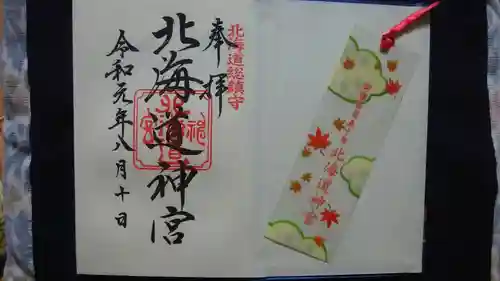 奉拝
北海道総鎮守
北海道神宮
令和元年八月十日
北海道神宮